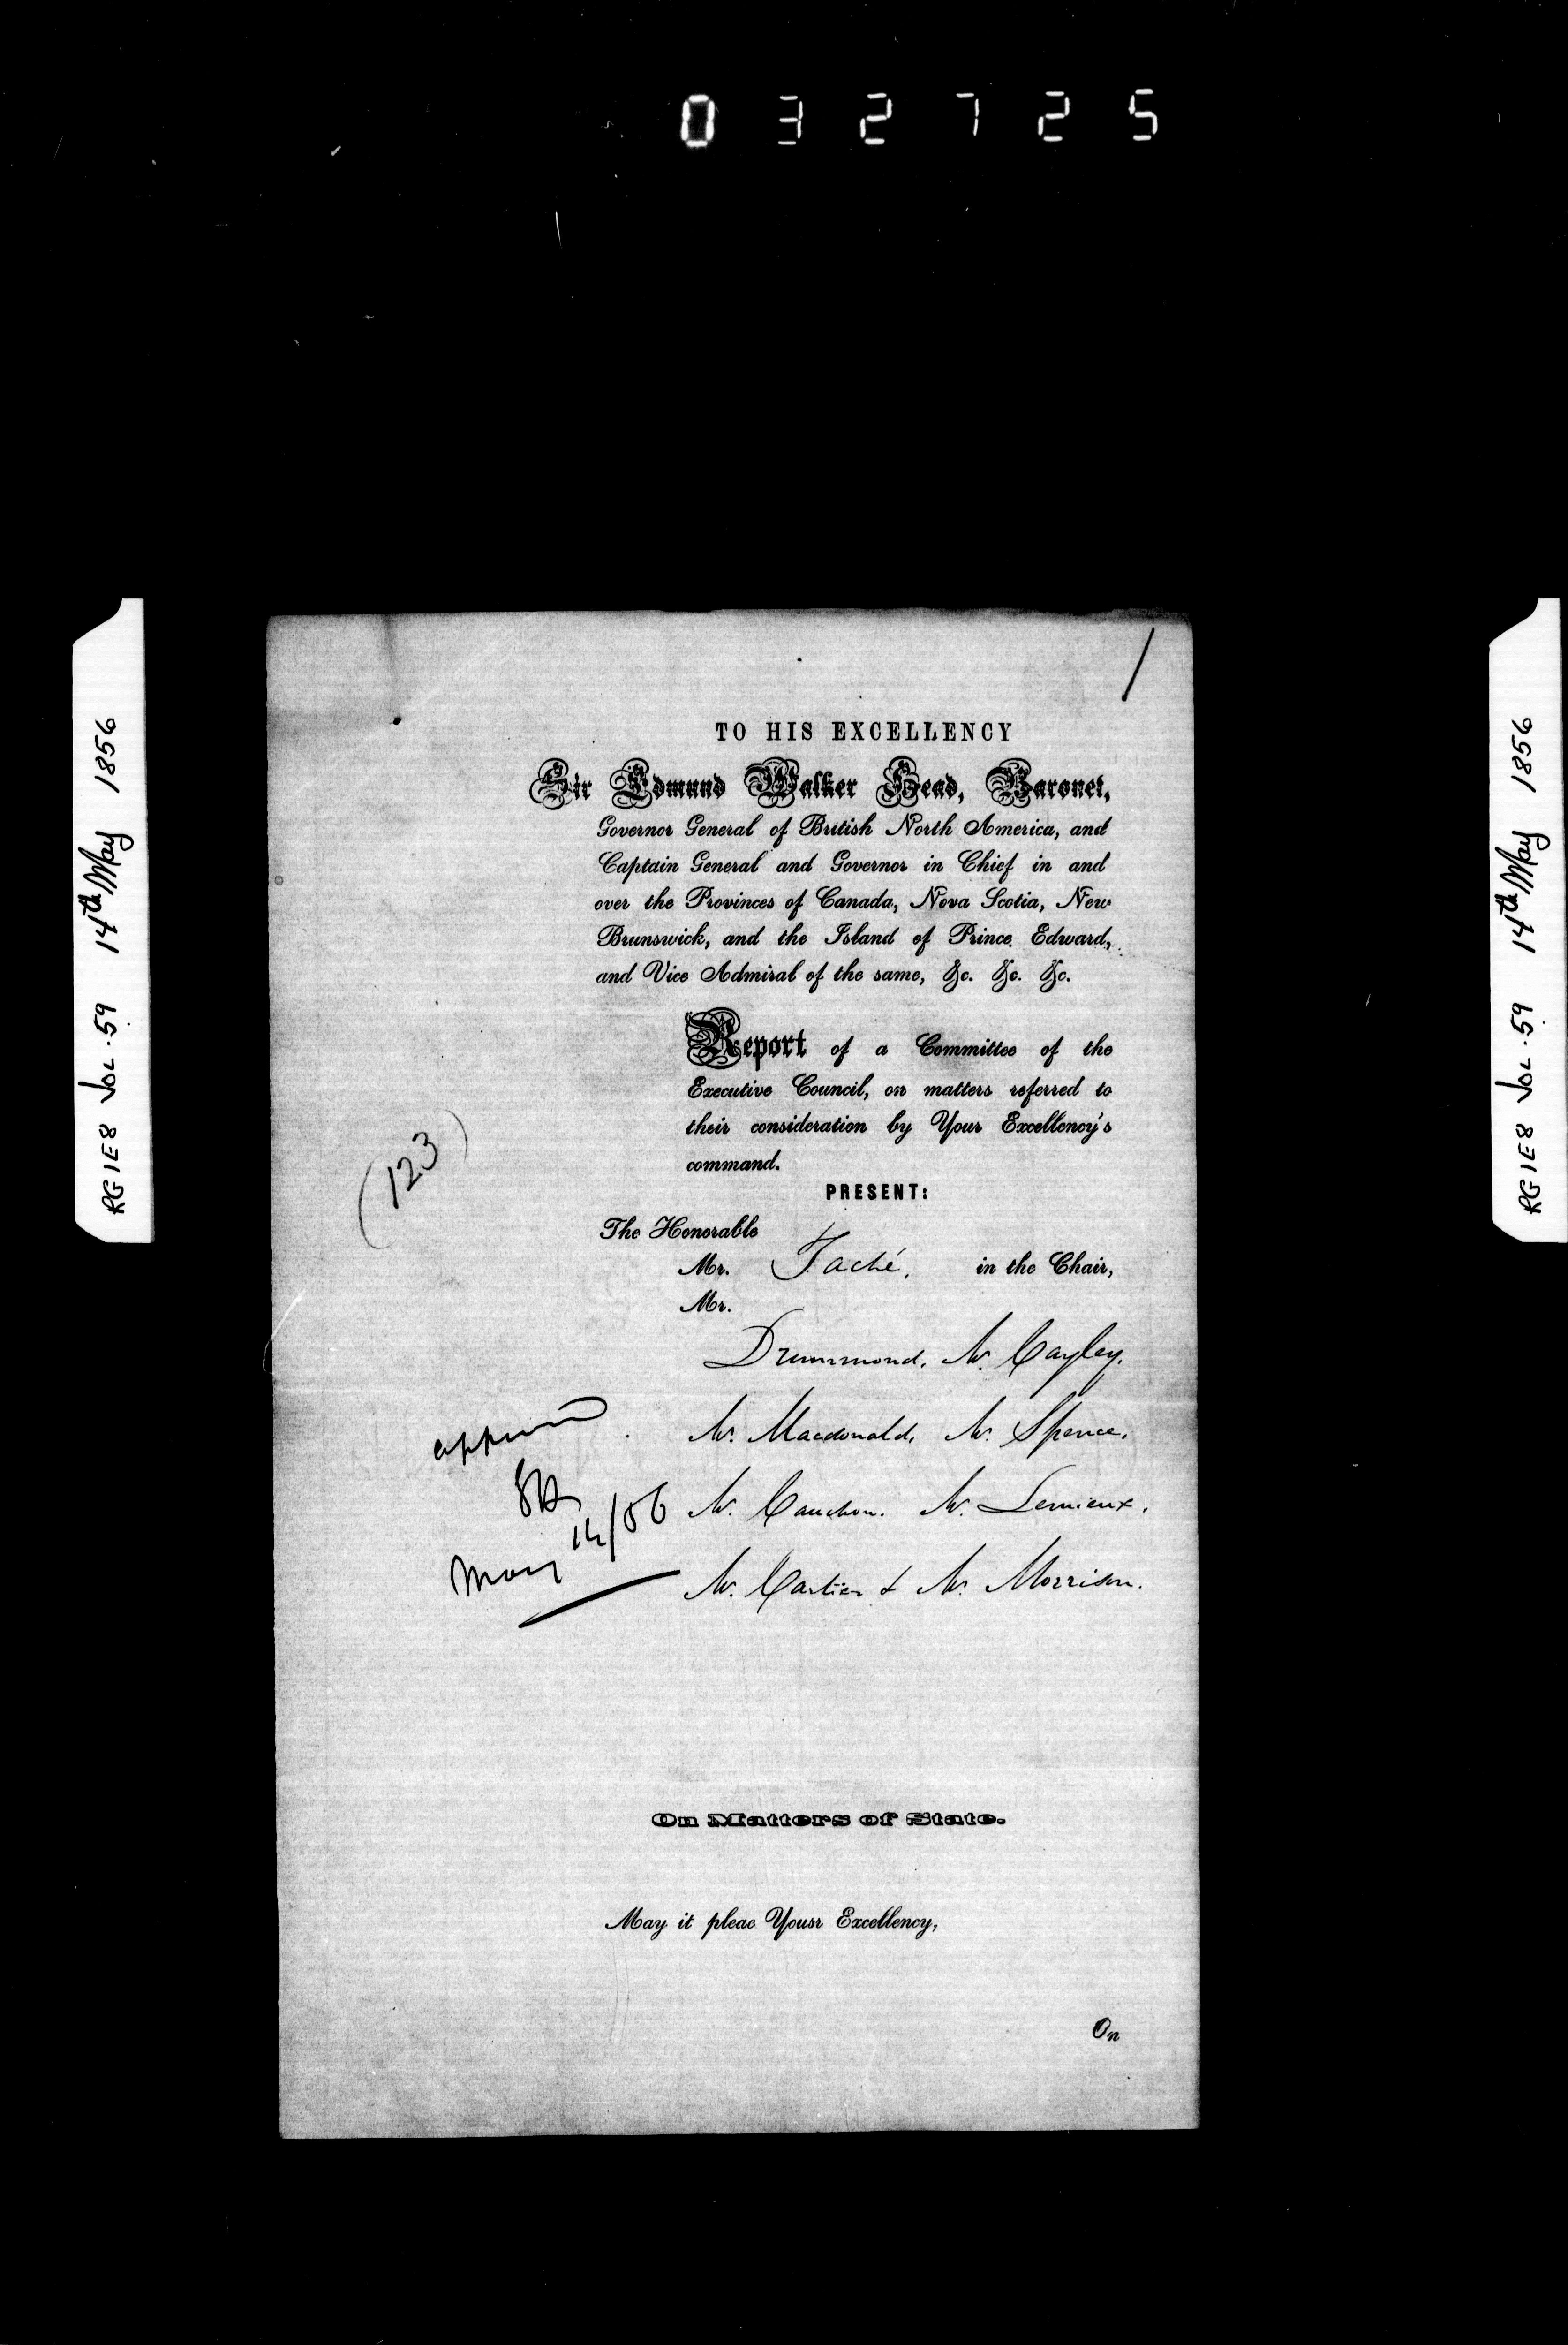 032725
RG1E8 VOL. 59 14th May 1856
/
TO HIS EXCELLENCY
Sir Edmund Walker Head, Baronet,
Governor General of British North America, and
Captain General and Governor in Chief in and
over the Provinces of Canada, Nova Scotia, New
Brunswick, and the Island of Prince Edward,
and Vice Admiral of the same, &c. &c. &c.
Report of a Committee of the
Executive Council, on matters referred to
their consideration by Your Excellency's
command.
(123)
PRESENT:
The Honorable
Mr. Taché, in the Chair,
Mr.
Drummond. Mr. Cayley.
Mr. Macdonald, Mr. Spence.
Mr. Cauchon. Mr. Lemieux.
Mr. Cartier & Mr. Morrison.
approved
May 14/56
On Matters of State.
May it pleae Yousr Excellency,
On
RG1E8 VOL. 59 14th May 1856